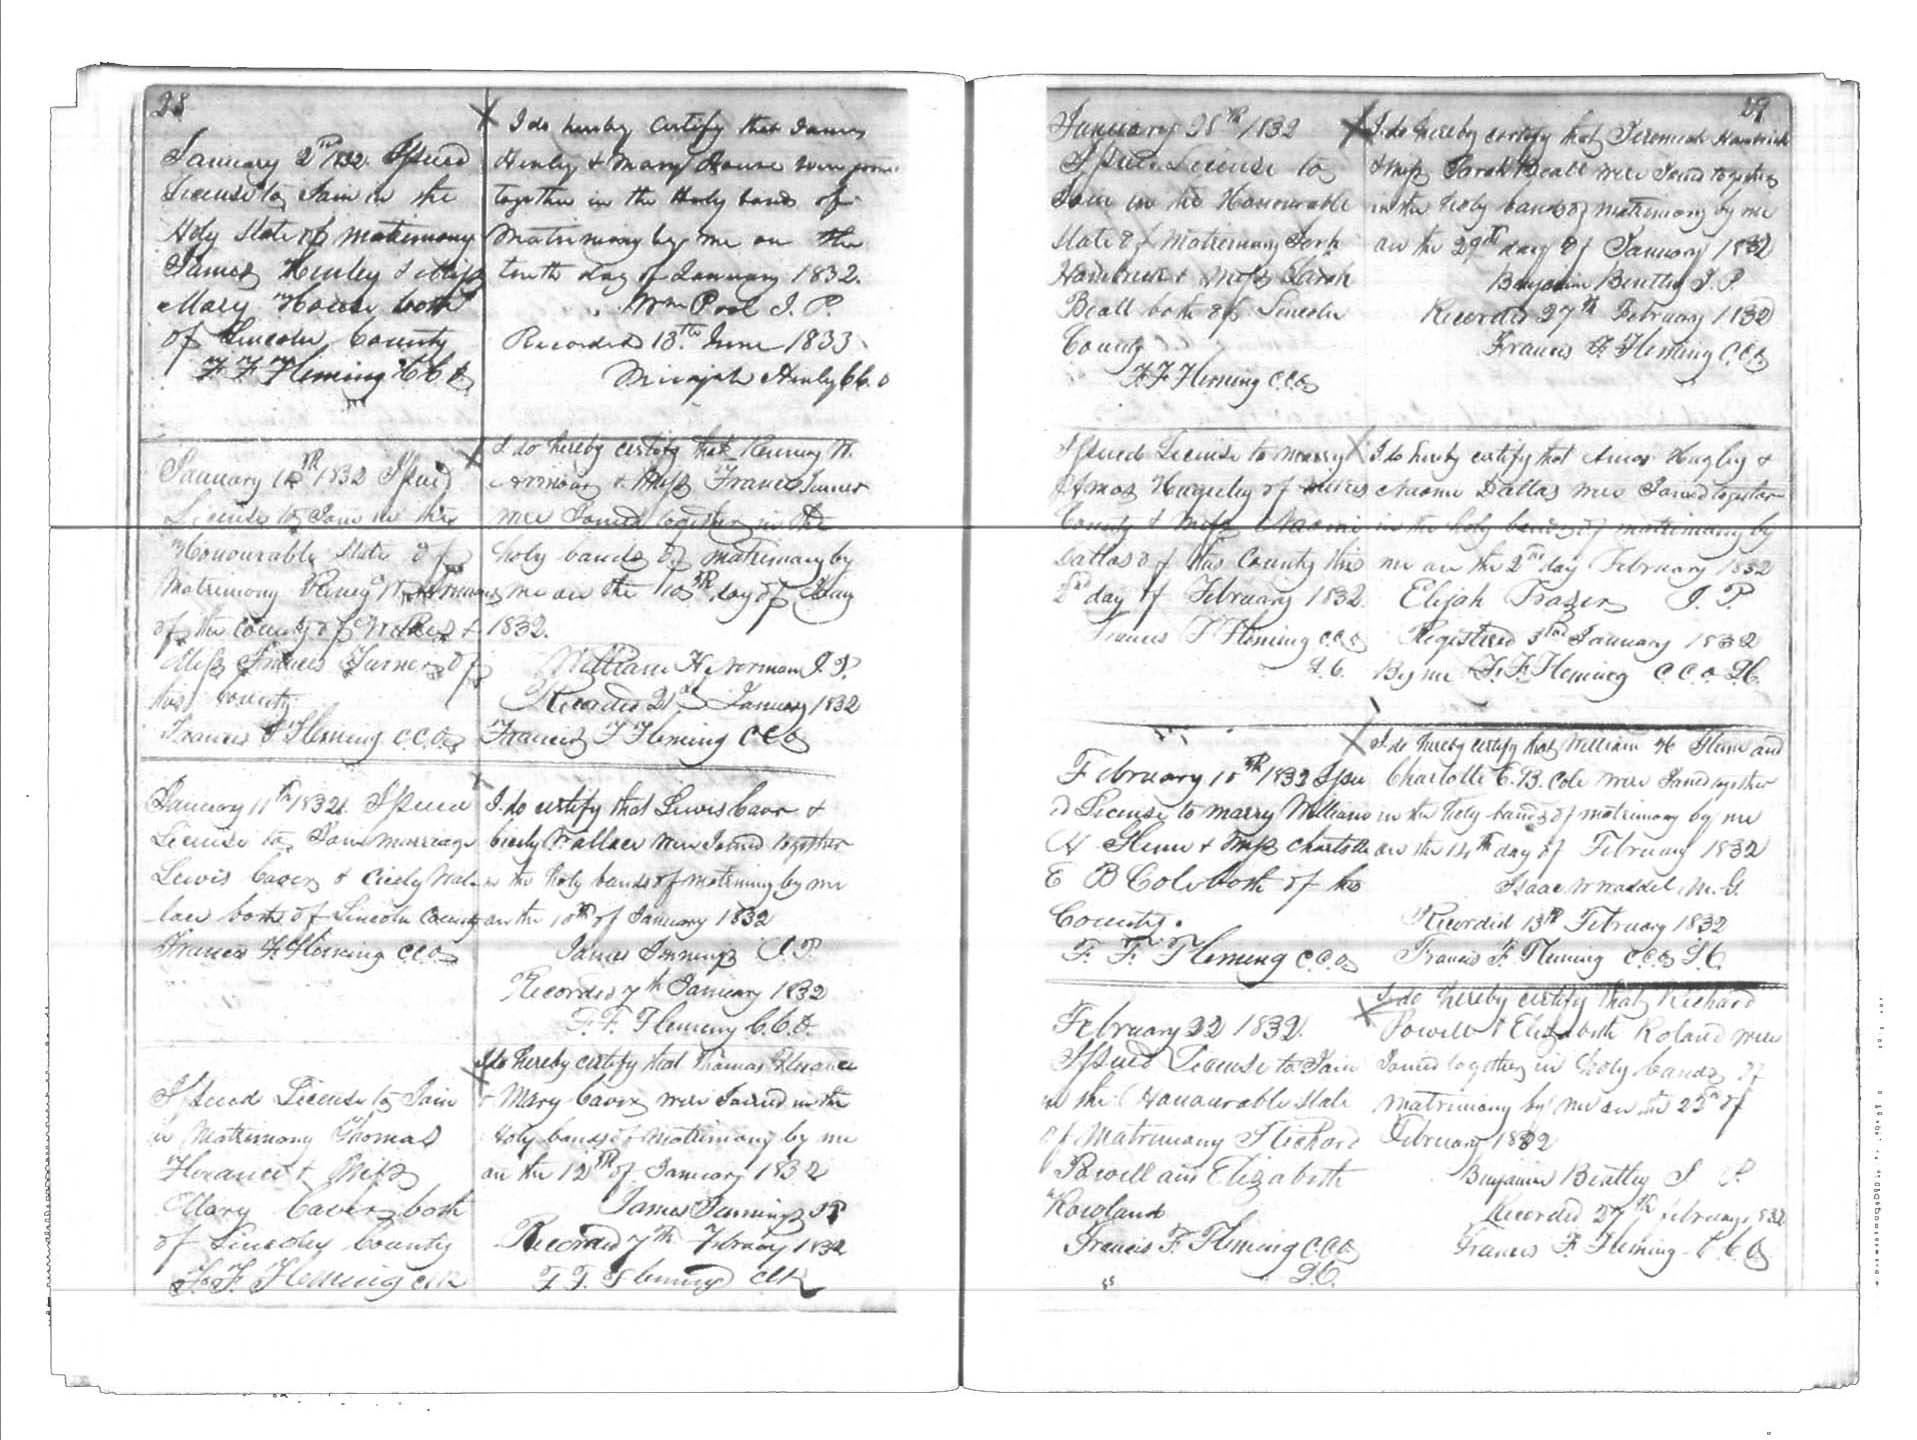 28
January 2nd 1832. Issued
License to Join in the
Holy State of matrimony
James Henley & Miss
Mary House both
of Lincoln County
F. F. Fleming C C O
I do hereby certify that James
Henly & Mary House were joined
together in the Holy bands of
Matrimony by me on the
tenth day of January 1832.
Wm Pool J. P.
Recorded 13th June 1833
Micajah Henly C C. O
January 10th 1832 Issued
License to Join in the
Honourable State of
Matrimony
of the County of Wilkes &
Miss Frances Turner of
this county.
Francis F Fleming C. C. O
I do hereby certify that W.
& Miss Frances Turner
were Joined together in the
holy bands of matrimony by
me on the 10th day of
1832.
William H. Norman J. P.
Recorded 21st January 1832
Francis F Fleming C C O
January 11th 1832. Issued
License to Join marriage
Lewis Caver & Cicely Wal-
lace both of Lincoln County
Francis F. Fleming C. C. O
I do certify that Lewis Cavr &
Cicely Wallace were Joined together
in the holy bands of matrimony by me
on the 10th of January 1832
James Jennings J. P.
Recorded 7th January 1832
F. F. Fleming C. C. O
Issued License to Join
in Matrimony Thomas
Florance & Miss
Mary Caver both
of Lincoln County
F. F. Fleming Clk
I do hereby certify that Thomas Florance
& Mary Caver were Joined in the
Holy bands of Matrimony by me
on the 12th of January 1832
James Jennings JP
Recorded 7th February 1832
F. F. Fleming Clk
29
January 28th 1832
Issued License to
Join in the Honourable
State of Matrimony
Hambrick & Miss Sarah
Beall both of Lincoln
County
F. F Fleming C. C. O
I do hereby certify that Jeremiah Hambrick
& Miss Sarah Beall were Joined together
in the holy bands of matrimony by me
on the 29th day of January 1832
Benjamin Bentley J. P.
Recorded 27th February 1832
Francis F. Fleming C. C. O
Issued License to marry
Amos Hugley of Wilkes
County & Miss Naomi
Dallas of this County this
2nd day of February 1832.
Francis F Fleming C. C. O
L. C.
I do hereby certify that Amos Hugley &
Naomi Dallas were Joined together
in the holy bands of matrimony by
me on the 2nd day February 1832
Elijah Frazer J. P.
Registered 3rd January 1832
By me F. F. Fleming C. C. O L. C.
February 10th 1832 Issu
ed License to marry William
H & Miss Charlotte
E B Cole both of
County.
F. F. Fleming C. C. O
I do hereby certify that William H and
Charlotte E. B. Cole were Joined together
in the holy bands of matrimony by me
on the 14th day of February 1832
Isaac Waddel M. G.
Recorded 13th February 1832
Francis F. Fleming C. C. O L. C.
February 22 1832.
Issued License to Join
in the Honourable State
of Matrimony Richard
Powell and Elizabeth
Rowland
Francis F. Fleming C. C. O
L. C.
I do hereby certify that Richard
Powell & Elizabeth Roland were
Joined together in holy bands of
matrimony by me on the 23rd of
February 1832
Benjamin Bentley J P.
Recorded 27th February 1832
Francis F. Fleming C. C. O